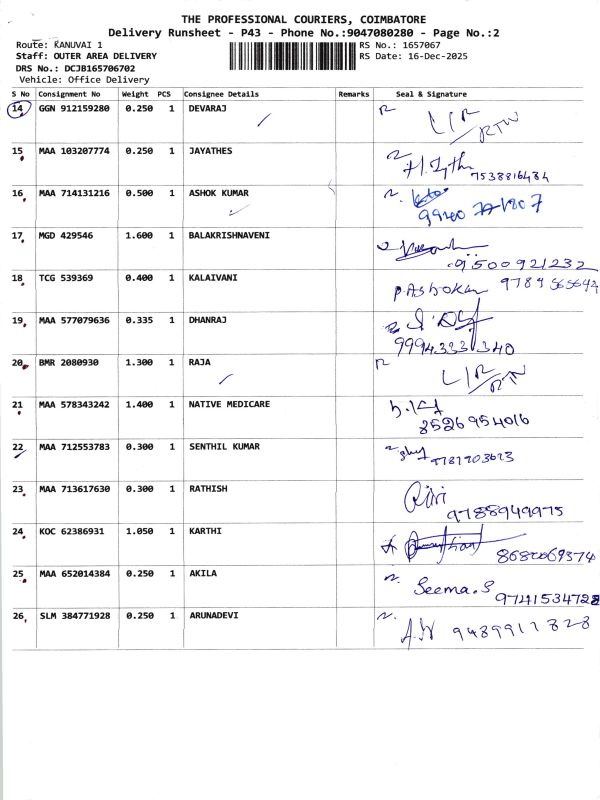 THE PROFESSIONAL COURIERS, COIMBATORE
Delivery Runsheet - P43 - Phone No.:9047080280 - Page No.:2
Route: KANUVAI 1
RS No.: 1657067
Staff: OUTER AREA DELIVERY
RS Date: 16-Dec-2025
DRS No.: DCJB165706702
Vehicle: Office Delivery
S No Consignment No Weight PCS Consignee Details Remarks Seal & Signature
14 GGN 912159280 0.250 1 DEVARAJ
L/R RTN
15 MAA 103207774 0.250 1 JAYATHES
7538816484
16 MAA 714131216 0.500 1 ASHOK KUMAR
17 MGD 429546 1.600 1 BALAKRISHNAVENI
9500921232
18 TCG 539369 0.400 1 KALAIVANI
P. Ashokan
19 MAA 577079636 0.335 1 DHANRAJ
9994333340
20 BMR 2080930 1.300 1 RAJA
L/R RTN
21 MAA 578343242 1.400 1 NATIVE MEDICARE
8526954016
22 MAA 712553783 0.300 1 SENTHIL KUMAR
23 MAA 713617630 0.300 1 RATHISH
9788949975
24 KOC 62386931 1.050 1 KARTHI
25 MAA 652014384 0.250 1 AKILA
Seema.S 9741534728
26 SLM 384771928 0.250 1 ARUNADEVI